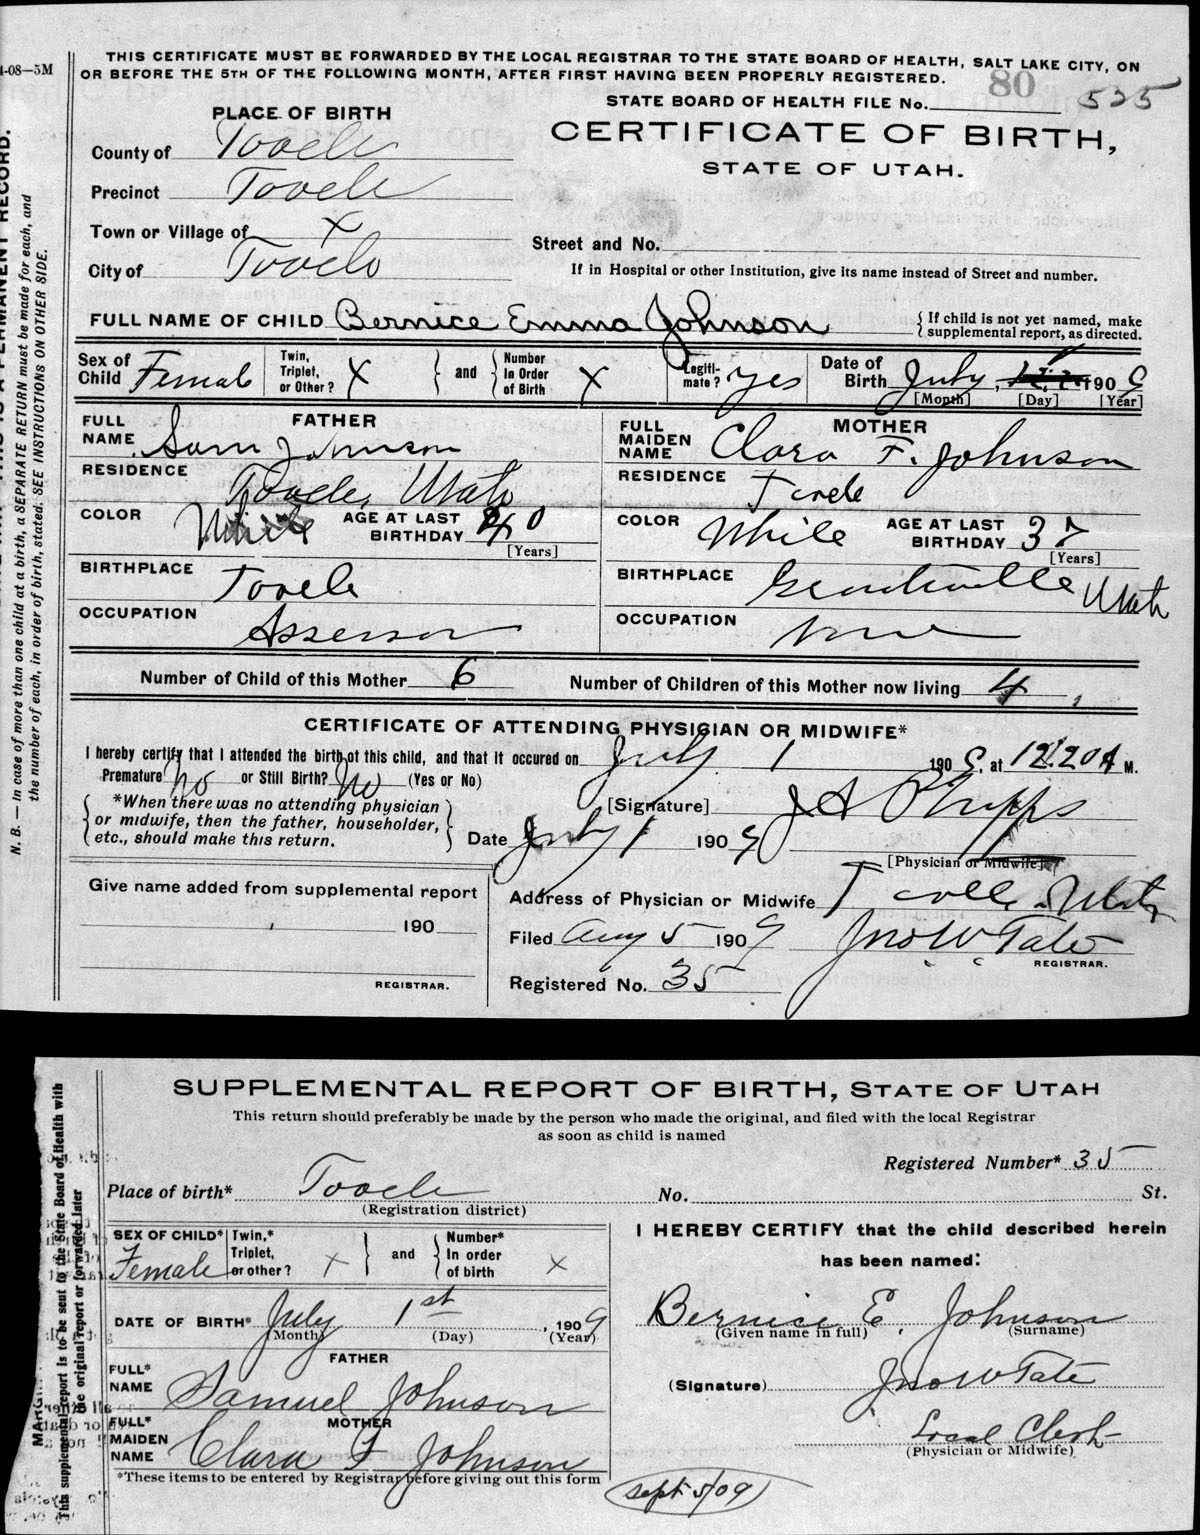 4-08—5M
THIS CERTIFICATE MUST BE FORWARDED BY THE LOCAL REGISTRAR TO THE STATE BOARD OF HEALTH, SALT LAKE CITY, ON
OR BEFORE THE 5TH OF THE FOLLOWING MONTH, AFTER FIRST HAVING BEEN PROPERLY REGISTERED.
80
STATE BOARD OF HEALTH FILE No. 525
PLACE OF BIRTH
CERTIFICATE OF BIRTH,
STATE OF UTAH.
County of Tooele
Precinct Tooele
Town or Village of X
City of Tooele
Street and No.
If in Hospital or other Institution, give its name instead of Street and number.
FULL NAME OF CHILD Bernice Emma Johnson
{ If child is not yet named, make
supplemental report, as directed.
Sex of Child Female
Twin, Triplet, or Other? X } and { Number In Order of Birth X
Legiti-mate? yes
Date of Birth July 1 1909
[Month] [Day] [Year]
FATHER
FULL NAME Sam Johnson
RESIDENCE Tooele, Utah
COLOR White AGE AT LAST BIRTHDAY 40
[Years]
BIRTHPLACE Tooele
OCCUPATION Assessor
MOTHER
FULL MAIDEN NAME Clara F. Johnson
RESIDENCE Tooele
COLOR White AGE AT LAST BIRTHDAY 37
[Years]
BIRTHPLACE Grantsville Utah
OCCUPATION
Number of Child of this Mother 6 Number of Children of this Mother now living 4
CERTIFICATE OF ATTENDING PHYSICIAN OR MIDWIFE*
I hereby certify that I attended the birth of this child, and that it occured on July 1 1909, at 12.20 A M.
Premature No or Still Birth? No (Yes or No)
{ *When there was no attending physician
or midwife, then the father, householder,
etc., should make this return. }
[Signature] J A Phipps
Date July 1 1909
[Physician or Midwife]
Give name added from supplemental report
190
REGISTRAR.
Address of Physician or Midwife Tooele Utah
Filed Aug 5 1909 Jno W Tate
REGISTRAR.
Registered No. 35
N. B. — In case of more than one child at a birth, a SEPARATE RETURN must be made for each, and
the number of each, in order of birth, stated. SEE INSTRUCTIONS ON OTHER SIDE.
SUPPLEMENTAL REPORT OF BIRTH, STATE OF UTAH
This return should preferably be made by the person who made the original, and filed with the local Registrar
as soon as child is named
Registered Number* 35
Place of birth* Tooele No. St.
(Registration district)
SEX OF CHILD* Female
Twin,* Triplet, or other? X } and { Number* In order of birth X
I HEREBY CERTIFY that the child described herein
has been named:
DATE OF BIRTH* July 1st, 1909
(Month) (Day) (Year)
Bernice E. Johnson
(Given name in full) (Surname)
FATHER
FULL* NAME Samuel Johnson
(Signature) Jno W Tate
MOTHER
FULL* MAIDEN NAME Clara F Johnson
Local Clerk
(Physician or Midwife)
*These items to be entered by Registrar before giving out this form
Sept 5/09
This supplemental report is to be sent to the State Board of Health with
the original report or forwarded later